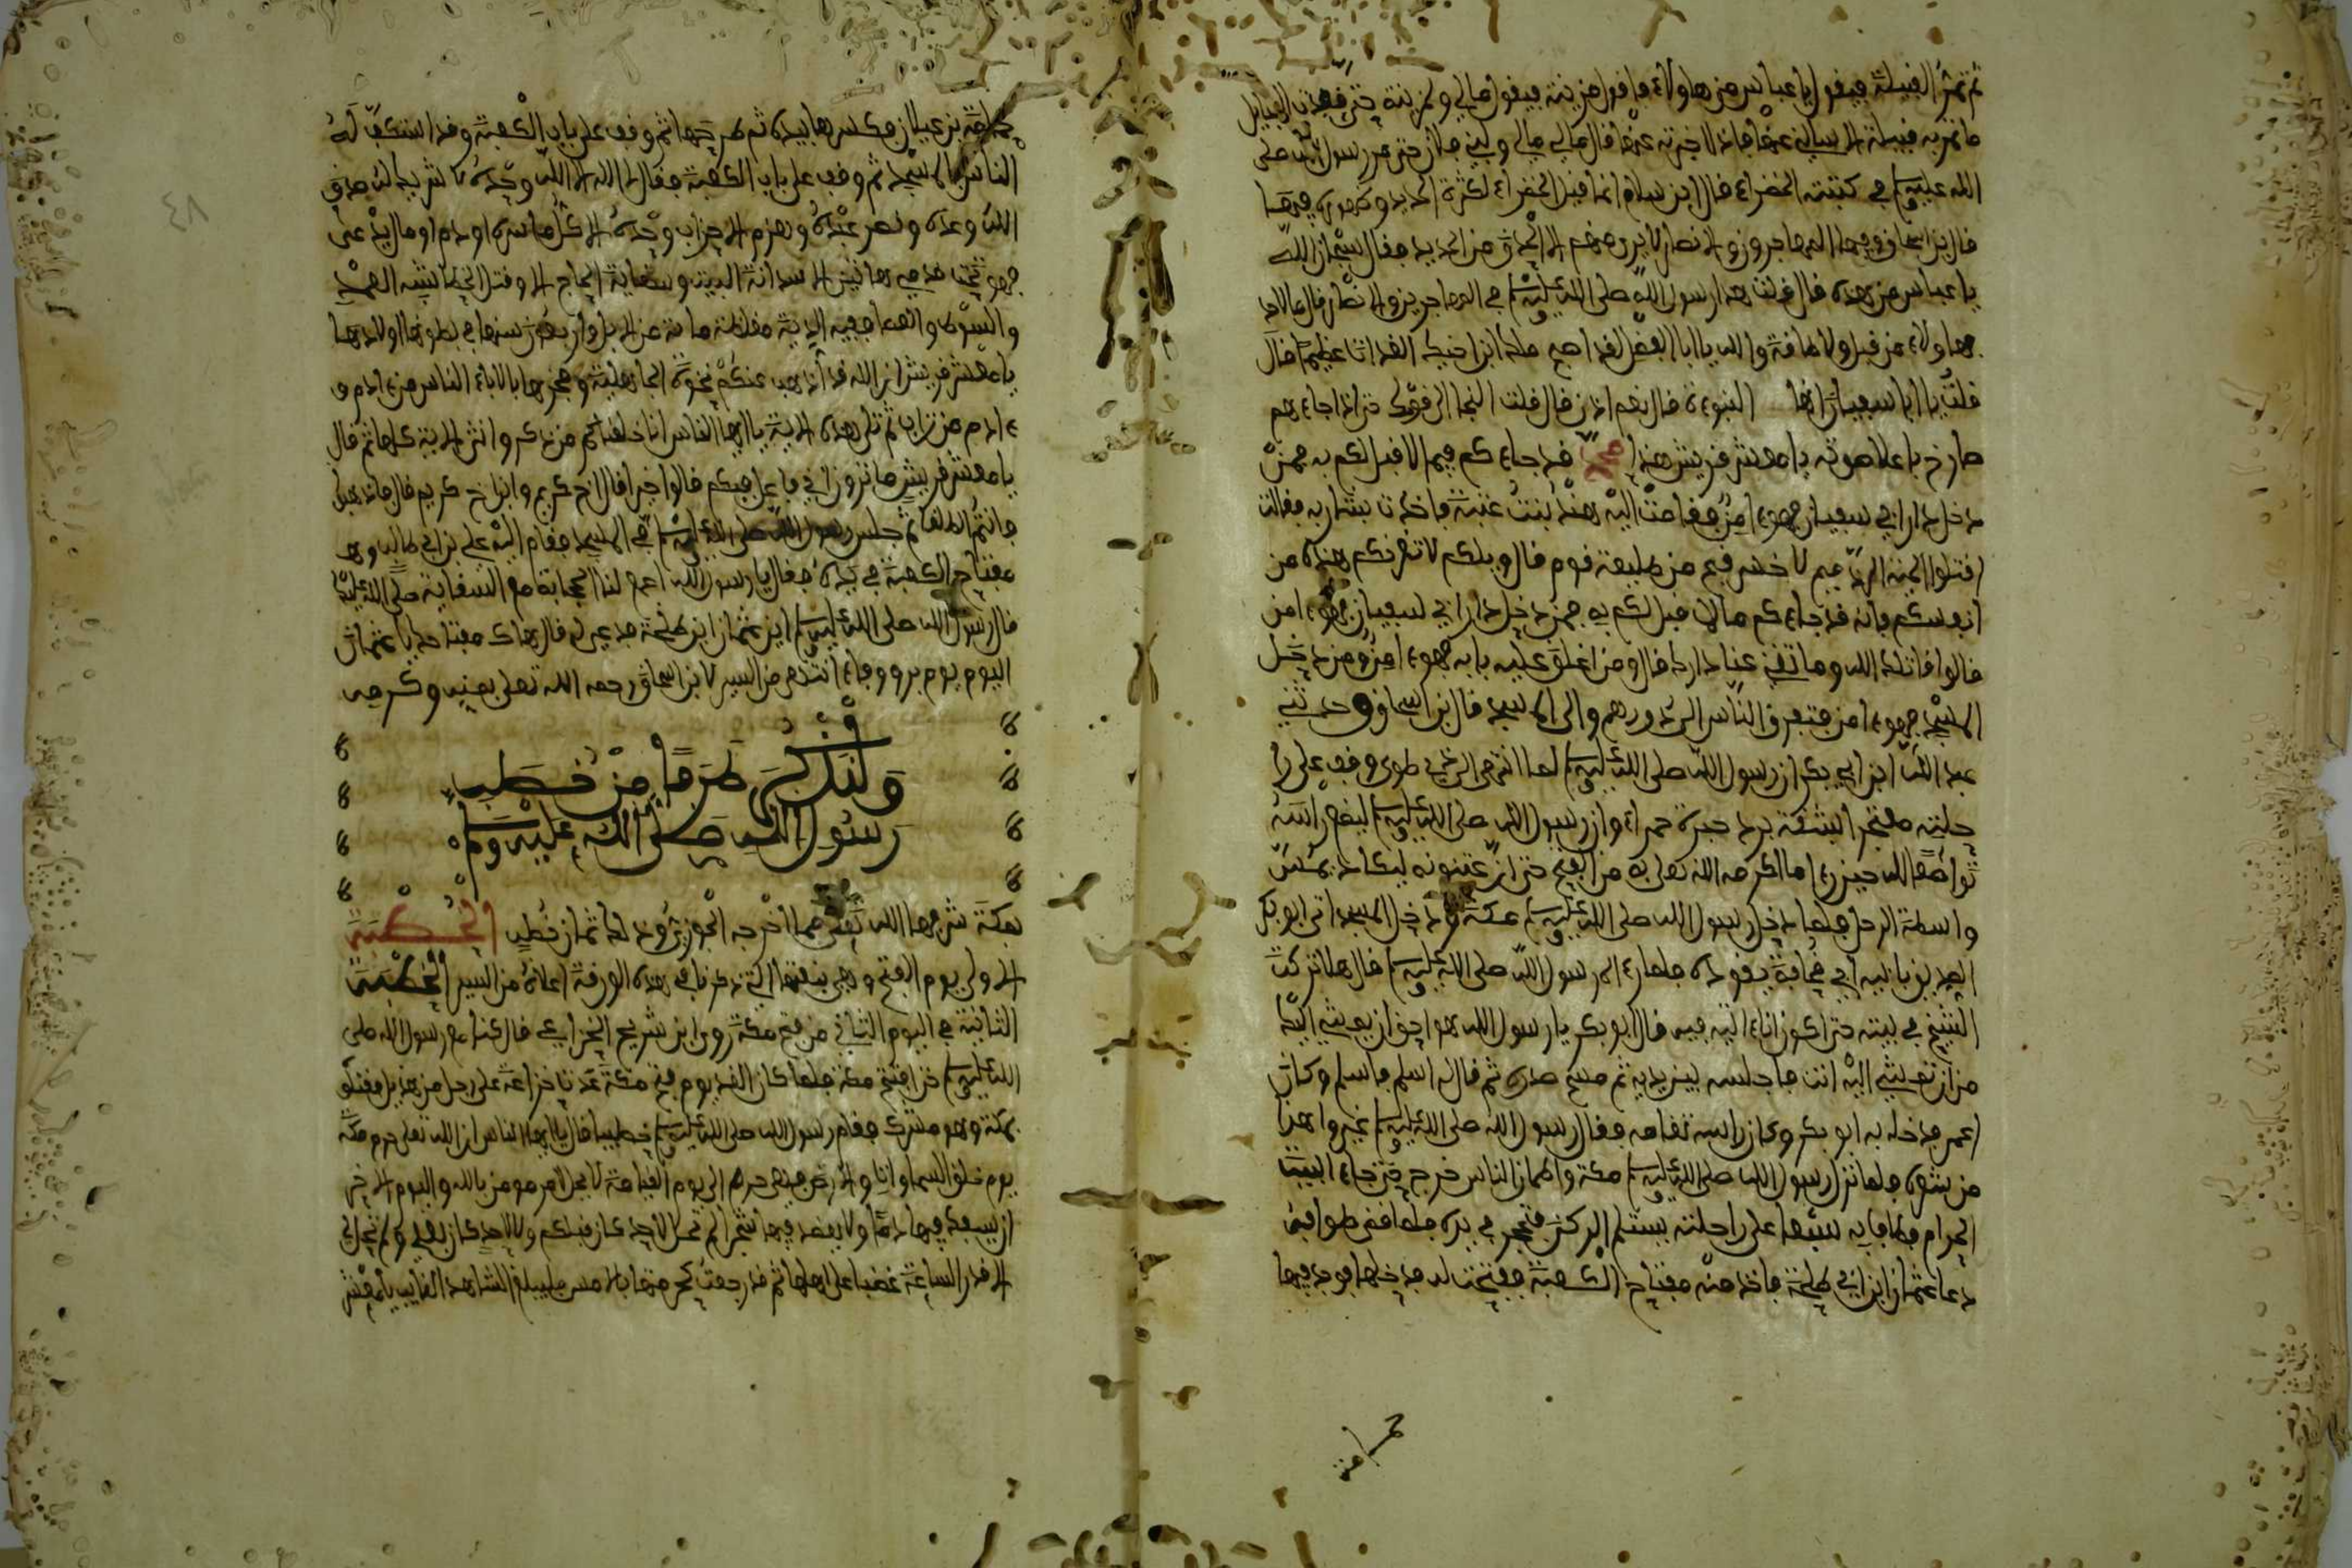 ثم تمر القبيلة فيقول يا عباس من هاولاء فاقول مزينة فيقول مالي ولمزينة حتى نفدت القبايل
ما تمر به قبيلة الا سالني عنها فاذا اخبرته عنها قال مالي ولبني فلان حتى مر رسول الله صلى
الله عليه وسلم في كتيبته الخضراء قال ابن هشام انما قيل الخضراء لكثرة الحديد وظهوره فيها
قال ابن اسحاق وفيها المهاجرون والانصار لا يرى منهم الا الحدق من الحديد فقال سبحان الله
يا عباس من هذه قال قلت هذا رسول الله صلى الله عليه وسلم في المهاجرين والانصار قال ما لاحد
بهاولاء من قبل ولا طاقة والله يا ابا الفضل لقد اصبح ملك ابن اخيك الغداة عظيما قال
قلت يا ابا سفيان انها النبوءة قال نعم اذن قال قلت النجا الى قومك حتى اذا جاءهم
صارخ باعلا صوته يا معشر قريش هذا محمد قد جاءكم فيما لا قبل لكم به فمن
دخل دار ابي سفيان فهو ءامن فقامت اليه هند بنت عتبة فاخذت بشاربه فقالت
اقتلوا الحميت الدسم لا خسر قبح من طليعة قوم قال ويلكم لا تغرنكم هذه من
انفسكم فانه قد جاءكم ما لا قبل لكم به فمن دخل دار ابي سفيان فهو ءامن
قالوا قاتلك الله وما تغني عنا دارك قال ومن اغلق عليه بابه فهو ءامن ومن دخل
المسجد فهو ءامن فتفرق الناس الى دورهم والى المسجد قال ابن اسحاق وحدثني
عبد الله ابن ابي بكر ان رسول الله صلى الله عليه وسلم لما انتهى الى ذي طوى وقف على را
حلته معتجرا بشقة برد حبرة حمراء وان رسول الله صلى الله عليه وسلم ليضع راسه
تواضعا لله حين رءا ما اكرمه الله تعلى به من الفتح حتى ان عثنونه ليكاد يمس
واسطة الرحل فلما دخل رسول الله صلى الله عليه وسلم مكة ودخل المسجد اتى ابو بكر
الصديق بابيه ابي قحافة يقوده فلما رءاه رسول الله صلى الله عليه وسلم قال هلا تركت
الشيخ في بيته حتى اكون انا ءاتيه فيه قال ابو بكر يا رسول الله هو احق ان يمشي اليك
من ان تمشي اليه انت فاجلسه بين يديه ثم مسح صدره ثم قال له اسلم فاسلم وكان
اعمى فدخل به ابو بكر وكان راسه ثغامة فقال رسول الله صلى الله عليه وسلم غيروا هذا
من شعره فلما نزل رسول الله صلى الله عليه وسلم مكة واطمان الناس خرج حتى جاء البيت
الحرام فطاف به سبعا على راحلته يستلم الركن بمحجن في يده فلما قضى طوافه
دعا عثمان ابن ابي طلحة فاخذ منه مفتاح الكعبة ففتحت له فدخلها فوجد فيها
حمامة
حمامة من عيدان فكسرها بيده ثم طرحها ثم وقف على باب الكعبة وقد استكف له
الناس في المسجد ثم وقف على باب الكعبة فقال لا اله الا الله وحده لا شريك له صدق
الله وعده ونصر عبده وهزم الاحزاب وحده الا كل ماثرة او دم او مال يدعى
فهو تحت قدمي هاتين الا سدانة البيت وسقاية الحاج الا وقتل الخطا شبه العمد
والسوط والعصا ففيه الدية مغلظة ماية من الابل اربعون منها في بطونها اولادها
يا معشر قريش ان الله قد اذهب عنكم نخوة الجاهلية وفخرها بالاباء الناس من ءادم و
ءادم من تراب ثم تلى هذه الاية يا ايها الناس انا خلقناكم من ذكر وانثى الاية كلها ثم قال
يا معشر قريش ما ترون اني فاعل فيكم قالوا خيرا قال اخ كريم وابن اخ كريم قال فاذهبوا
فانتم الطلقا ثم جلس رسول الله صلى الله عليه وسلم في المسجد فقام اليه علي بن ابي طالب وهو
مفتاح الكعبة في يده فقال يا رسول الله اجمع لنا الحجابة مع السقاية صلى الله عليك
قال رسول الله صلى الله عليه وسلم اين عثمان ابن طلحة فدعي له قال هاك مفتاحك يا عثمان
اليوم يوم بر ووفاء انتهى من السير لابن اسحاق رحمه الله تعلى بمنه وكرمه
قف
ولنذكر طرفا من خطب
رسول الله صلى الله عليه وسلم
بمكة شرفها الله تعلى مما اخرجه المحوز يروى لها ثمان خطب الخطبة
الاولى يوم الفتح وهي بنفسها التي ذكرنا في هذه الورقة اعلاه من السير الخطبة
الثانية في اليوم الثاني من فتح مكة روى ابن شريح الخزاعي قال كنا مع رسول الله صلى
الله عليه وسلم حين افتتح مكة فلما كان الغد يوم فتح مكة عدت خزاعة على رجل من هذيل فقتلو
بمكة وهو مشرك فقام رسول الله صلى الله عليه وسلم خطيبا فقال يا ايها الناس ان الله تعلى حرم مكة
يوم خلق السماوات والارض فهي حرام الى يوم القيامة لا يحل لامر مومن بالله واليوم الاخر
ان يسفك فيها دما ولا يعضد فيها شجرا لم تحل لاحد كان قبلكم ولا لاحد كان بعدي ولم تحل لي
الا قدر الساعة غضبا على اهلها ثم قد رجعت كحرمتها بالامس فليبلغ الشاهد الغايب يا معشر
٤٨